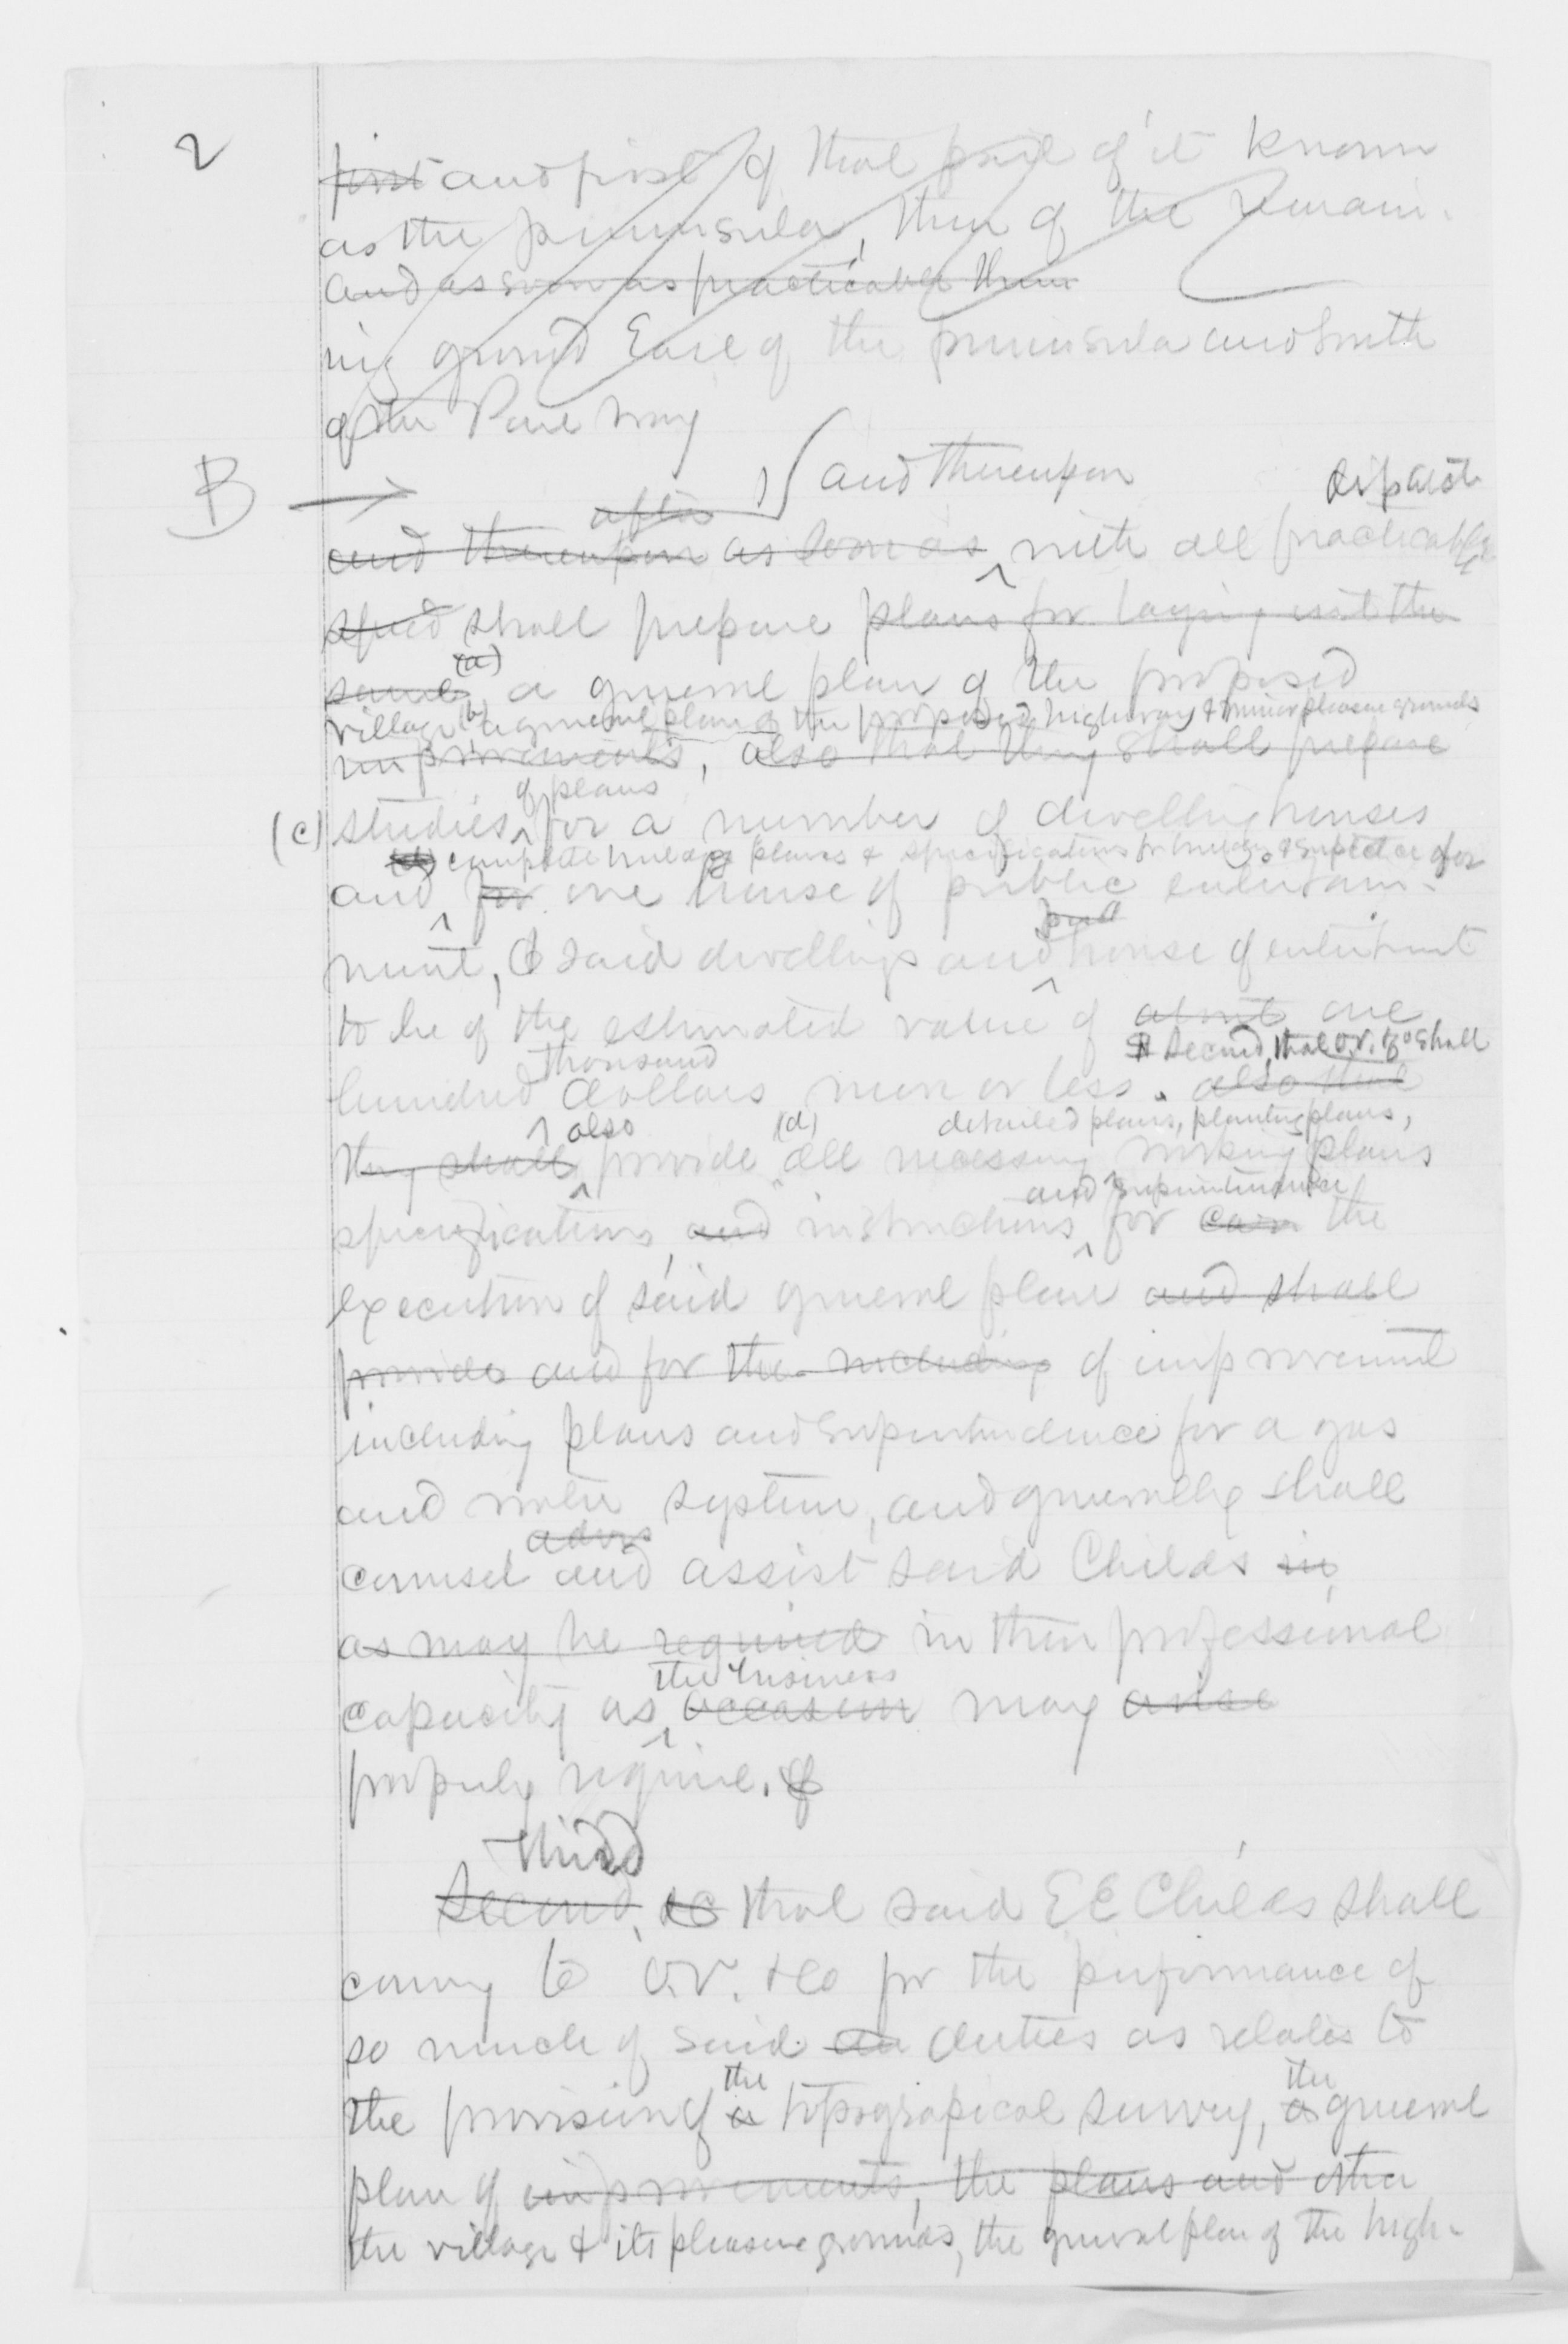 2
first and first of that part of it known
as the peninsula, then of the remain-
and as soon as practicable then
ing ground East of the peninsula and South
of the Park way
B → and thereupon dispatch
after
and thereupon as soon as with all practicable
speed shall prepare plans for laying out the
(a)
same, a general plan of the proposed
village (b) a general plan of the proposed highway & minor pleasure grounds
improvements, also that they shall prepare
of plans
(c) studies for a number of dwelling houses
(d) complete plans & specifications for & for
and for one house of public entertain-
and
ment, said dwellings and house of entertainment
to be of the estimated value of about one
thousand Second, that O.V. & Co shall
hundred dollars more or less. also that
also (d) detailed plans, planting plans,
they shall provide all necessary working plans
and superintendence
specifications, and instructions for the
execution of said general plan and shall
provide and for the including of improvement
including plans and superintendence for a gas
and water system, and generally shall
advise
counsel and assist said Childs in
as may be required in their professional
the business
capacity as occasion may arise
properly require.
Third
Second, that said E E Childs shall
convey to O.V. & Co for the performance of
so much of said duties as relates to
the the
the provision of a topograpical survey, a general
plan of improvements, the plans and other
the village & its pleasure grounds, the general plan of the high-